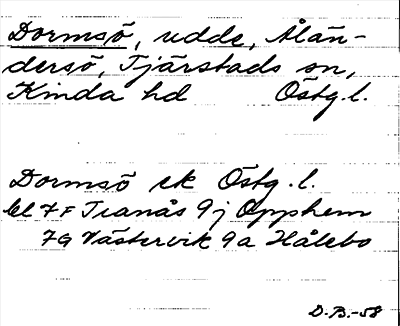 Dormsö, udde, Ålän-
dersö, Tjärstads sn,
Kinda hd Östg.l.
Dormsö ek Östg.l.
bl 7F Tranås 9j Opphem
7G Västervik 9a Hålebo
D.B.-58